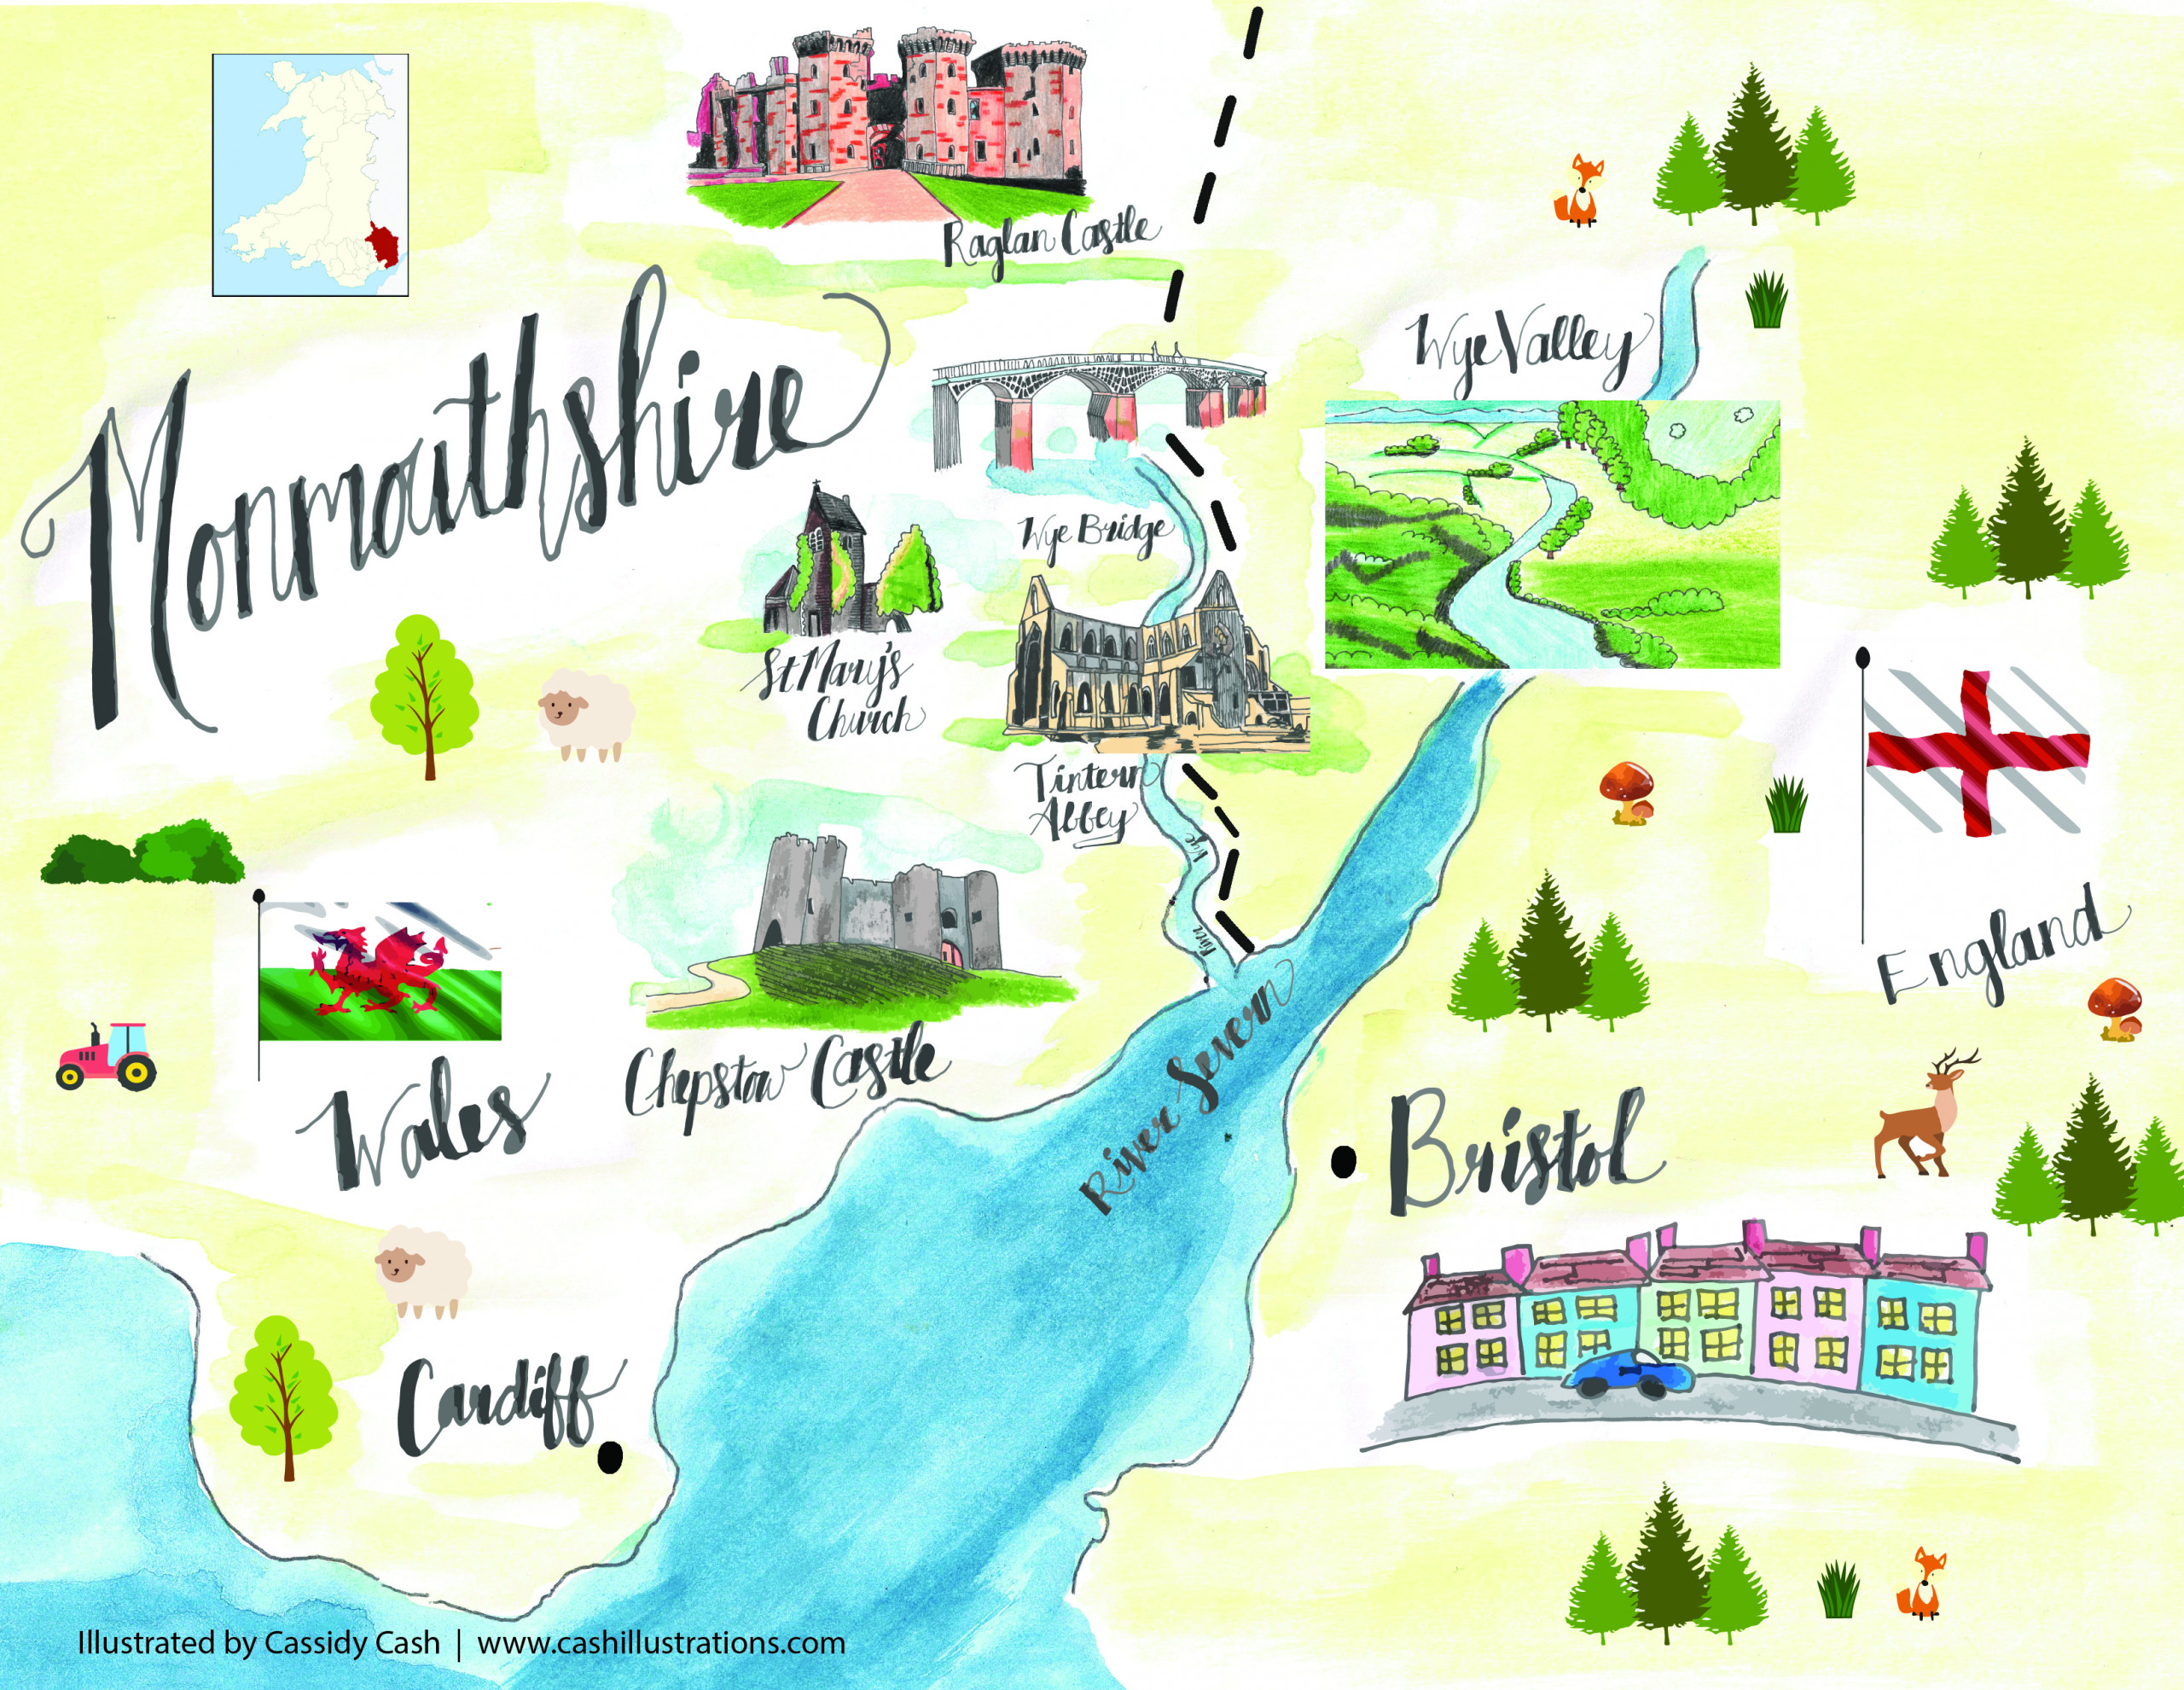 Raglan Castle
Monmouthshire
Wye Valley
Wye Bridge
St Mary's
Church
Tintern
Abbey
Wye
River
England
Wales
Chepstow Castle
River Severn
Bristol
Cardiff
Illustrated by Cassidy Cash | www.cashillustrations.com